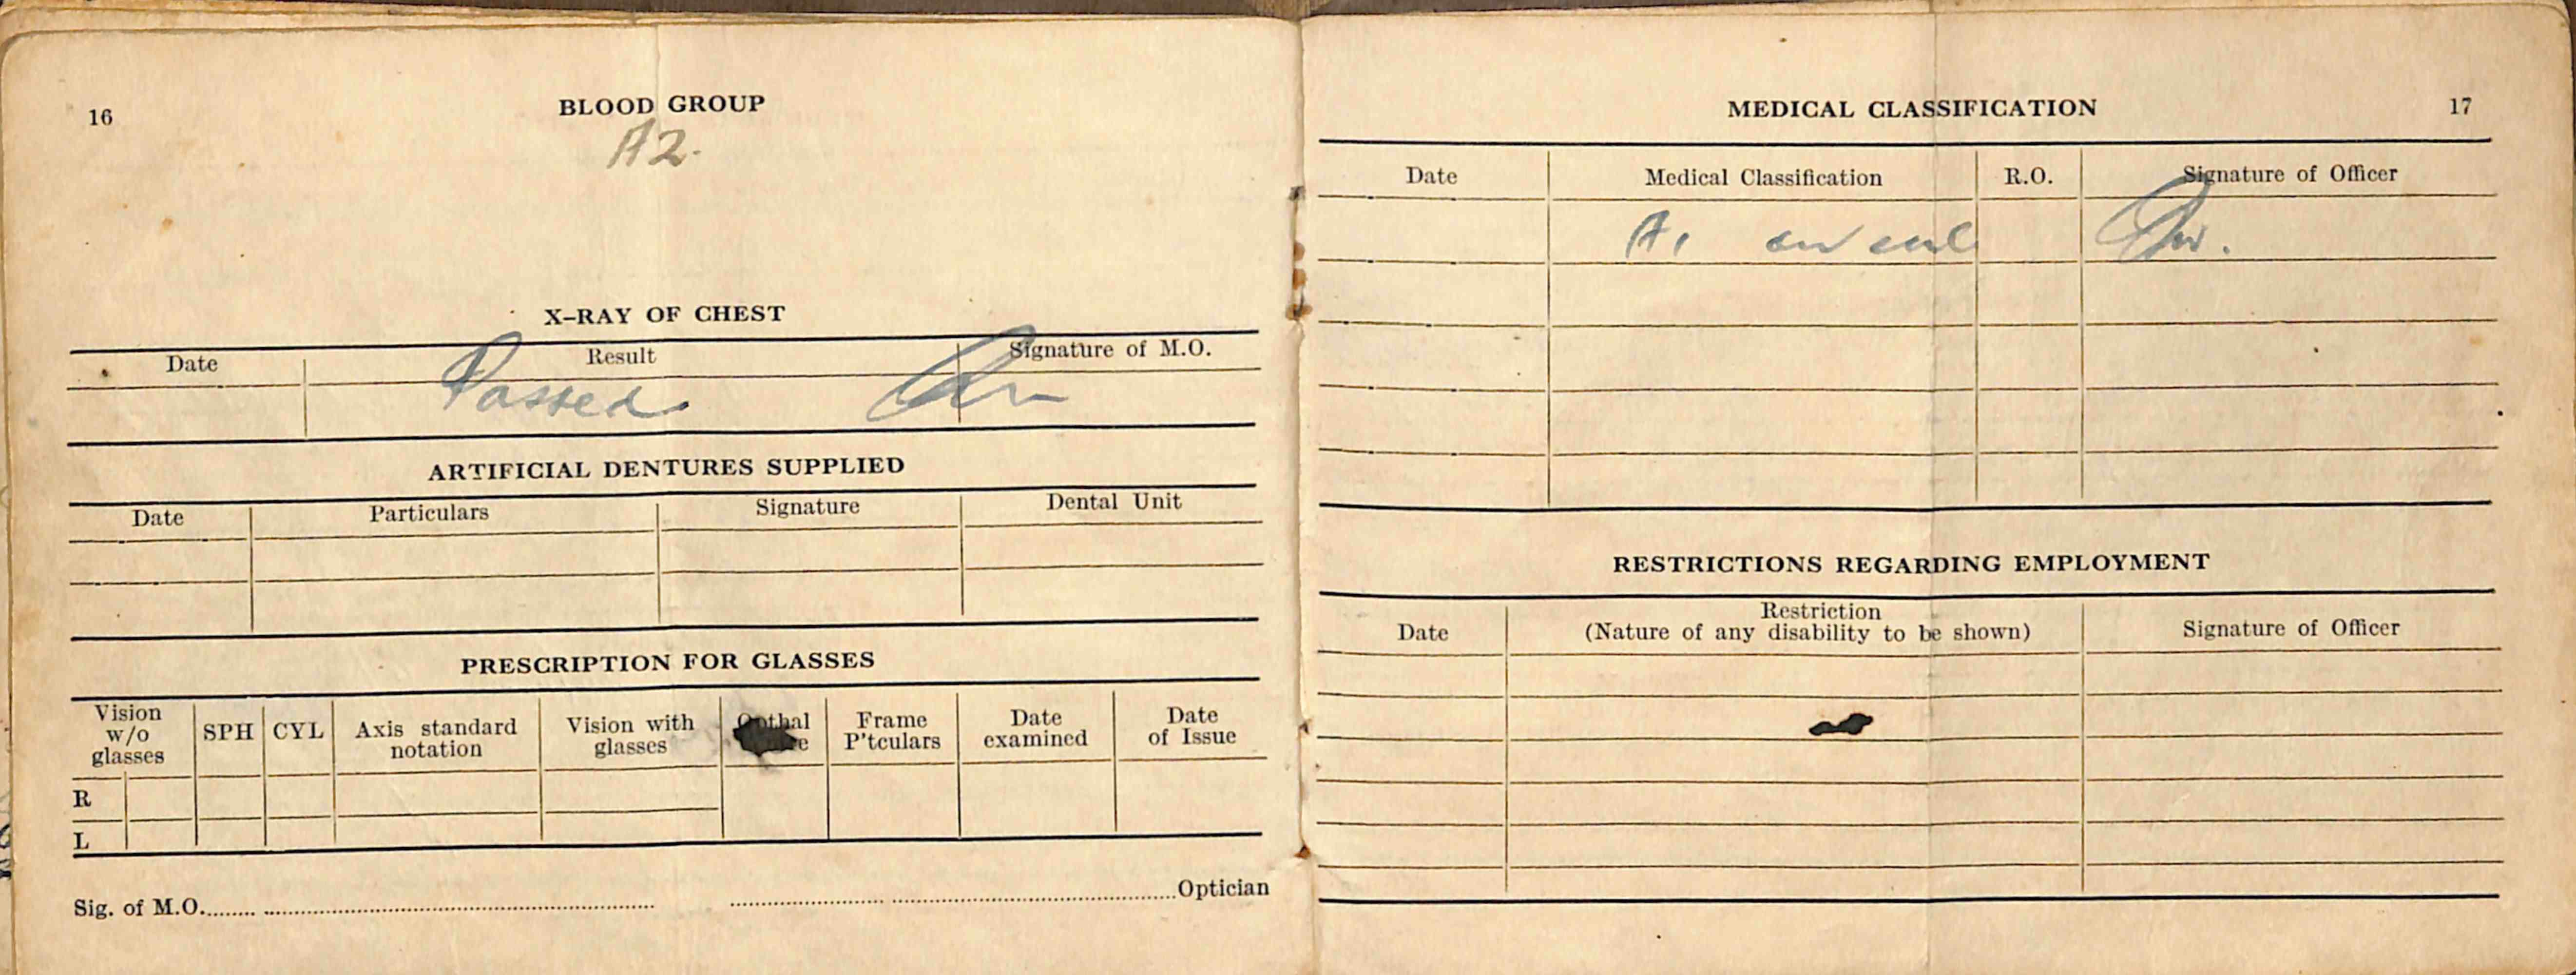 16
BLOOD GROUP
A2.
X-RAY OF CHEST
Date Result Signature of M.O.
Passed
ARTIFICIAL DENTURES SUPPLIED
Date Particulars Signature Dental Unit
PRESCRIPTION FOR GLASSES
Vision w/o glasses SPH CYL Axis standard notation Vision with glasses Frame P'tculars Date examined Date of Issue
R
L
Sig. of M.O. Optician
MEDICAL CLASSIFICATION 17
Date Medical Classification R.O. Signature of Officer
A1
RESTRICTIONS REGARDING EMPLOYMENT
Date Restriction (Nature of any disability to be shown) Signature of Officer